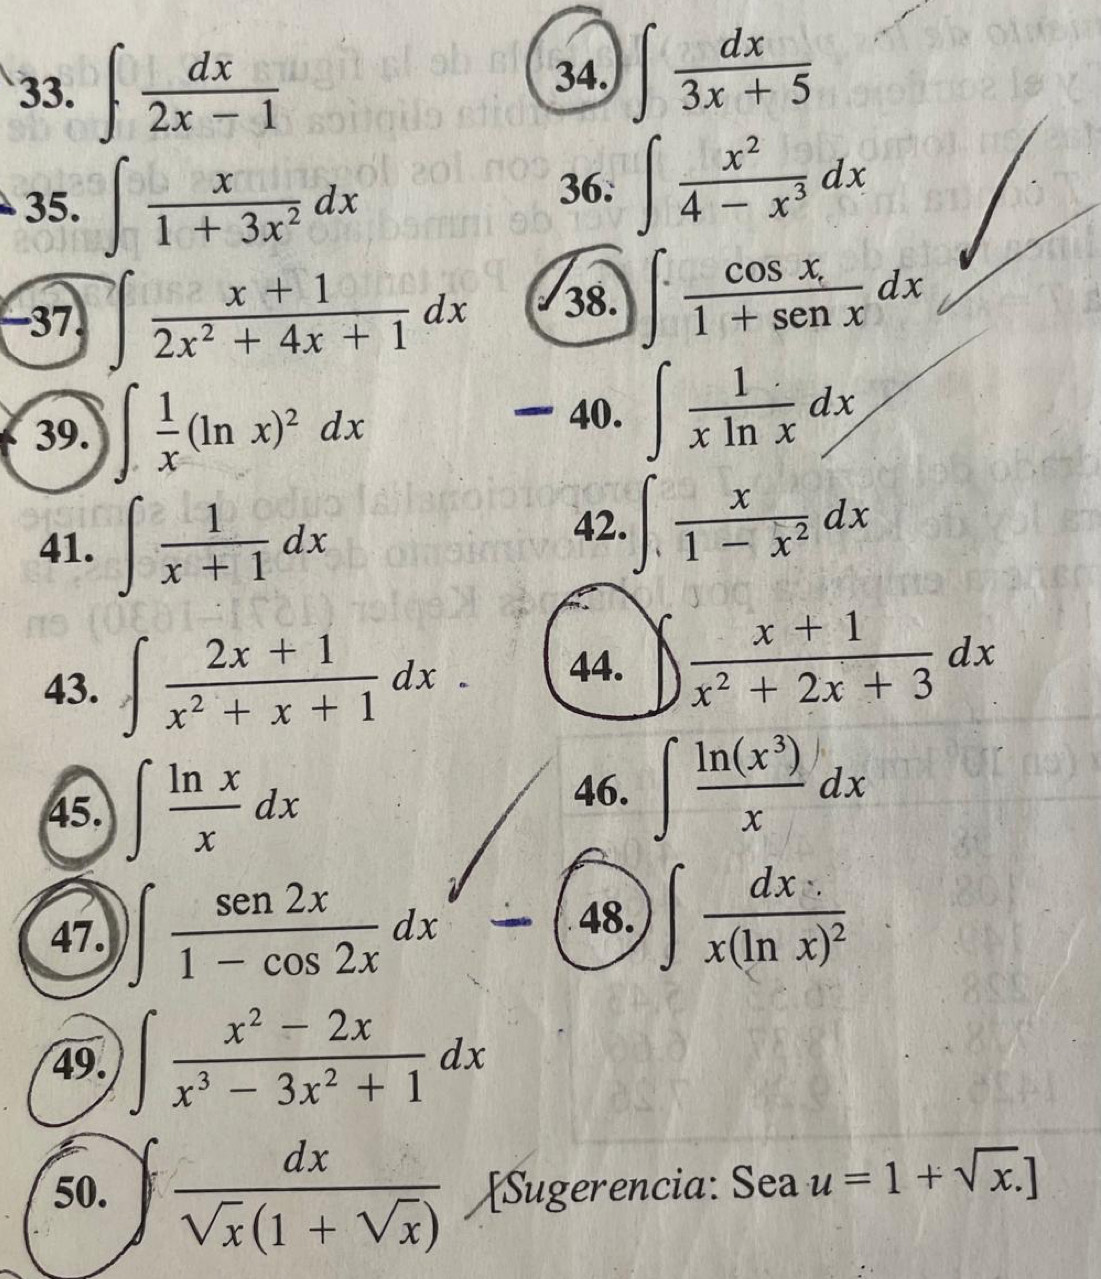 33. ∫ dx / (2x − 1)
34. ∫ dx / (3x + 5)
35. ∫ x / (1 + 3x²) dx
36. ∫ x² / (4 − x³) dx
37. ∫ (x + 1) / (2x² + 4x + 1) dx
38. ∫ cos x / (1 + sen x) dx
39. ∫ 1/x (ln x)² dx
40. ∫ 1 / (x ln x) dx
41. ∫ 1 / (x + 1) dx
42. ∫ x / (1 − x²) dx
43. ∫ (2x + 1) / (x² + x + 1) dx
44. ∫ (x + 1) / (x² + 2x + 3) dx
45. ∫ ln x / x dx
46. ∫ ln(x³) / x dx
47. ∫ sen 2x / (1 − cos 2x) dx
48. ∫ dx / (x(ln x)²)
49. ∫ (x² − 2x) / (x³ − 3x² + 1) dx
50. ∫ dx / (√x(1 + √x)) [Sugerencia: Sea u = 1 + √x.]